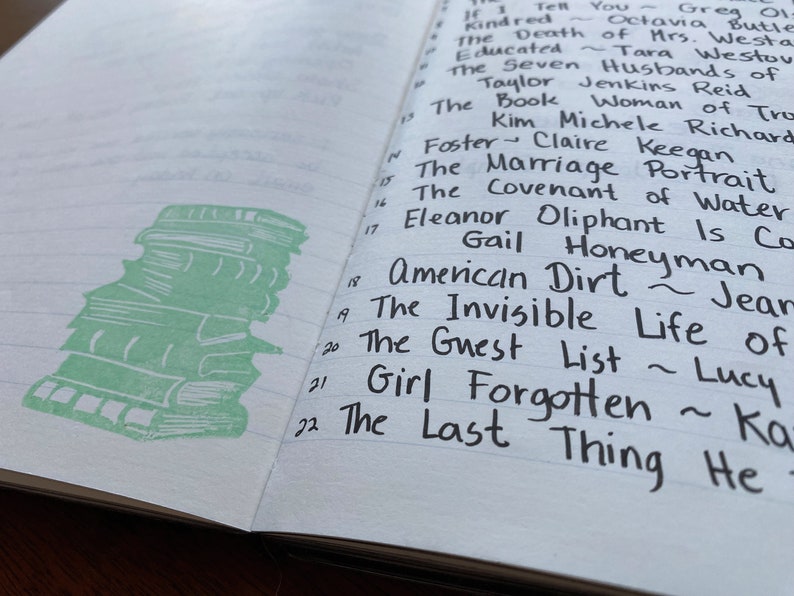 If I Tell You ~ Greg Ols
Kindred ~ Octavia Butle
The Death of Mrs. Westa
Educated ~ Tara Westov
The Seven Husbands of
Taylor Jenkins Reid
13 The Book Woman of Tro
Kim Michele Richard
14 Foster ~ Claire Keegan
15 The Marriage Portrait
16 The Covenant of Water
17 Eleanor Oliphant Is Co
Gail Honeyman
18 American Dirt ~ Jean
19 The Invisible Life of
20 The Guest List ~ Lucy
21 Girl Forgotten ~ Ka
22 The Last Thing He